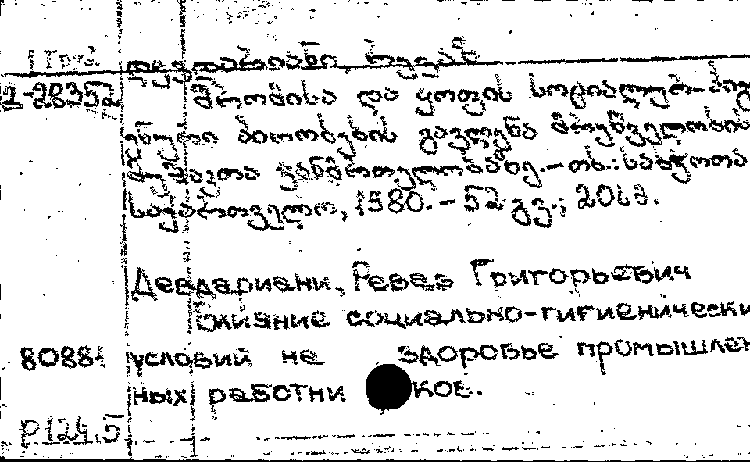 1 Груз
დევდარიანი, რევაზ
2-28352 შრომისა და ყოფის სოციალურ-ჰიგი
ენური პირობების გავლენა მრეწველობის
მუშაკთა ჯანმრთელობაზე.-თბ.:საბჭოთა
საქართველო, 1980.-52 გვ.; 20სმ.
Девдариани, Реваз Григорьевич
Влияние социально-гигиенически
условий на здоровье промышлен
ных работни кое.
Р124.5